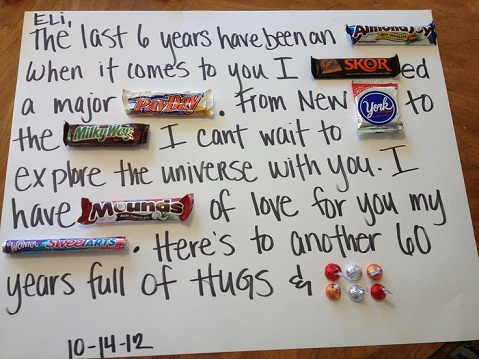 ELI,
The last 6 years have been an Almond Joy
when it comes to you I SKOR ed
a major PayDay . From New York to
the MilkyWay I cant wait to
explore the universe with you. I
have Mounds of love for you my
WONKA SweeTARTS . Here's to another 60
years full of HUGS &
10-14-12